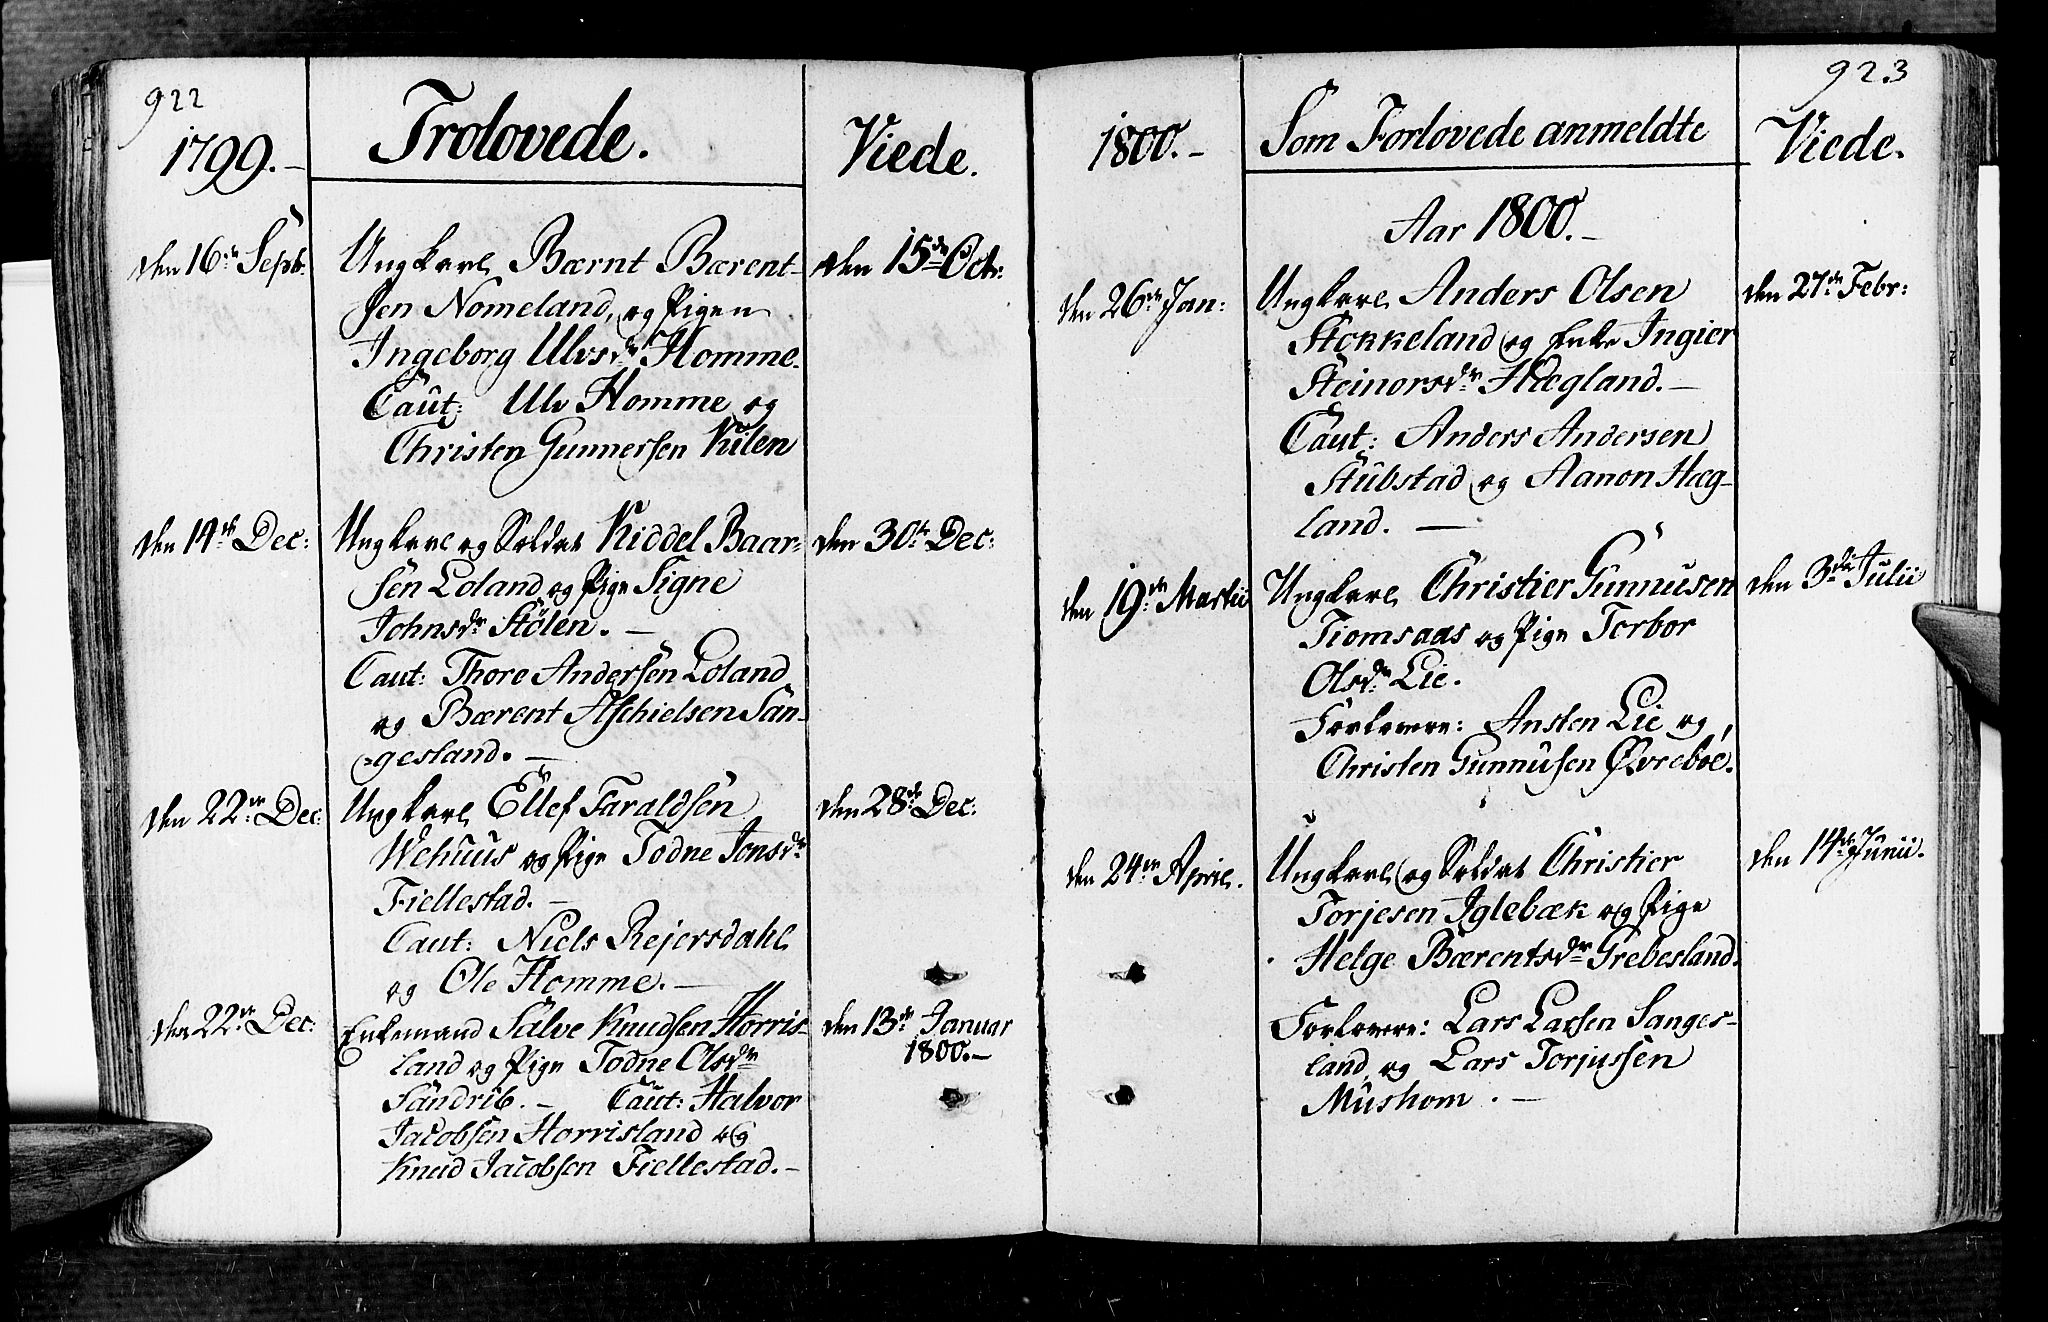 922
1799.–
Trolovede.
Viede.
den 16de Septb:
Ungkarl Bærnt Bærent-
sen Nomeland, og Pigen
Ingeborg Ulvsdr Homme.
Caut: Ulv Homme og
Christen Gunnersen Kilen
den 15de Octr:
den 14de Dec:
Ungkarl og Soldat Kiddel Baar-
sen Loland og Pige Signe
Johnsdr Stølen. –
Caut: Thore Andersen Loland
og Bærent Aschielsen San-
gesland. –
den 30te Dec:
den 22de Dec:
Ungkarl Ellef Taraldsen
Wehuus og Pige Todne Jonsdr
Fiellestad. –
Caut: Niels Rejersdahl
og Ole Homme. –
den 28de Dec:
den 22de Dec:
Enkemand Salve Knudsen Horris-
land og Pige Todne Olsdr
Sandrib. – Caut: Halvor
Jacobsen Horrisland og
Knud Jacobsen Fiellestad. –
den 13de Januar
1800. –
923
1800. –
Som Forlovede anmeldte
Viede.
Aar 1800. –
den 26de Jan:
Ungkarl Anders Olsen
Stokkeland og Enke Ingier
Steinorsdr Hægland. –
Caut: Anders Andersen
Stubstad og Aanon Hæg-
land. –
den 27de Febr:
den 19de Martii
Ungkarl Christier Gunnusen
Tiomsaas og Pige Torbor
Olsdr Lie.
Forlovere: Ansten Lie og
Christen Gunnusen Øvreboe.
den 3die Julii
den 24de April.
Ungkarl og Soldat Christier
Torjesen Iglebæk og Pige
Helge Bærentsdr Grebesland.
Forlovere: Lars Larsen Sanges-
land, og Lars Torjussen
Mushom. –
den 14de Junii.